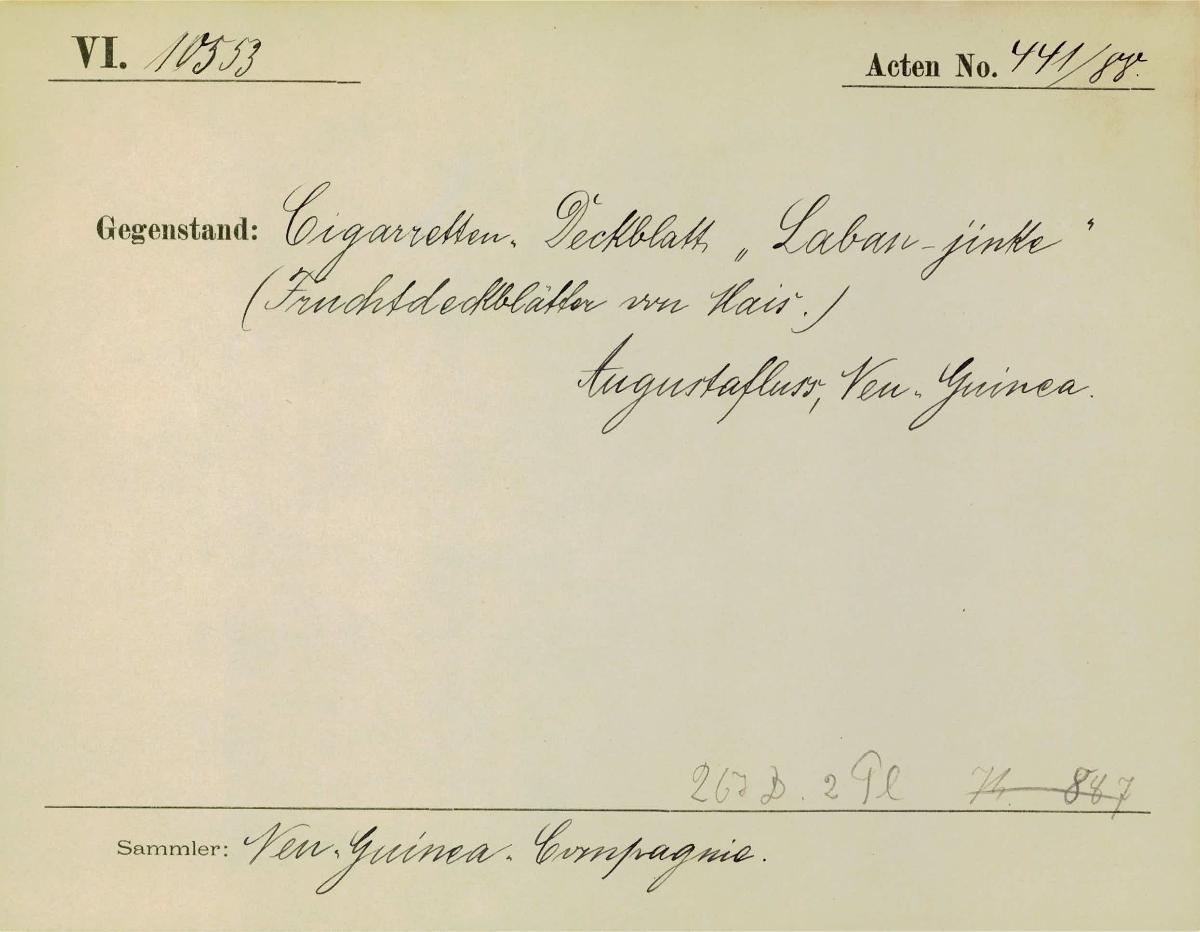 VI. 10553
Acten No. 441/88.
Gegenstand: Cigarretten-Deckblatt, „Laban-jinke“
(Fruchtdeckblätter von Mais.)
Augustafluss, Neu-Guinea.
267 B. 2 Pl 74. 887
Sammler: Neu-Guinea-Compagnie.